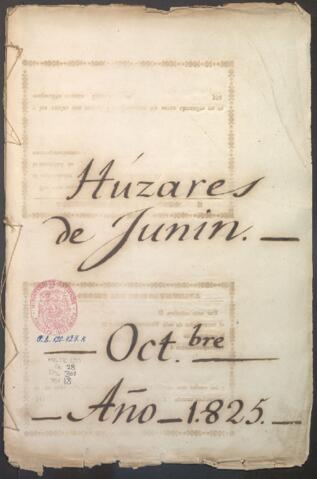 Húzares
de Junin. —
— Oct.bre —
— Año — 1.825. —